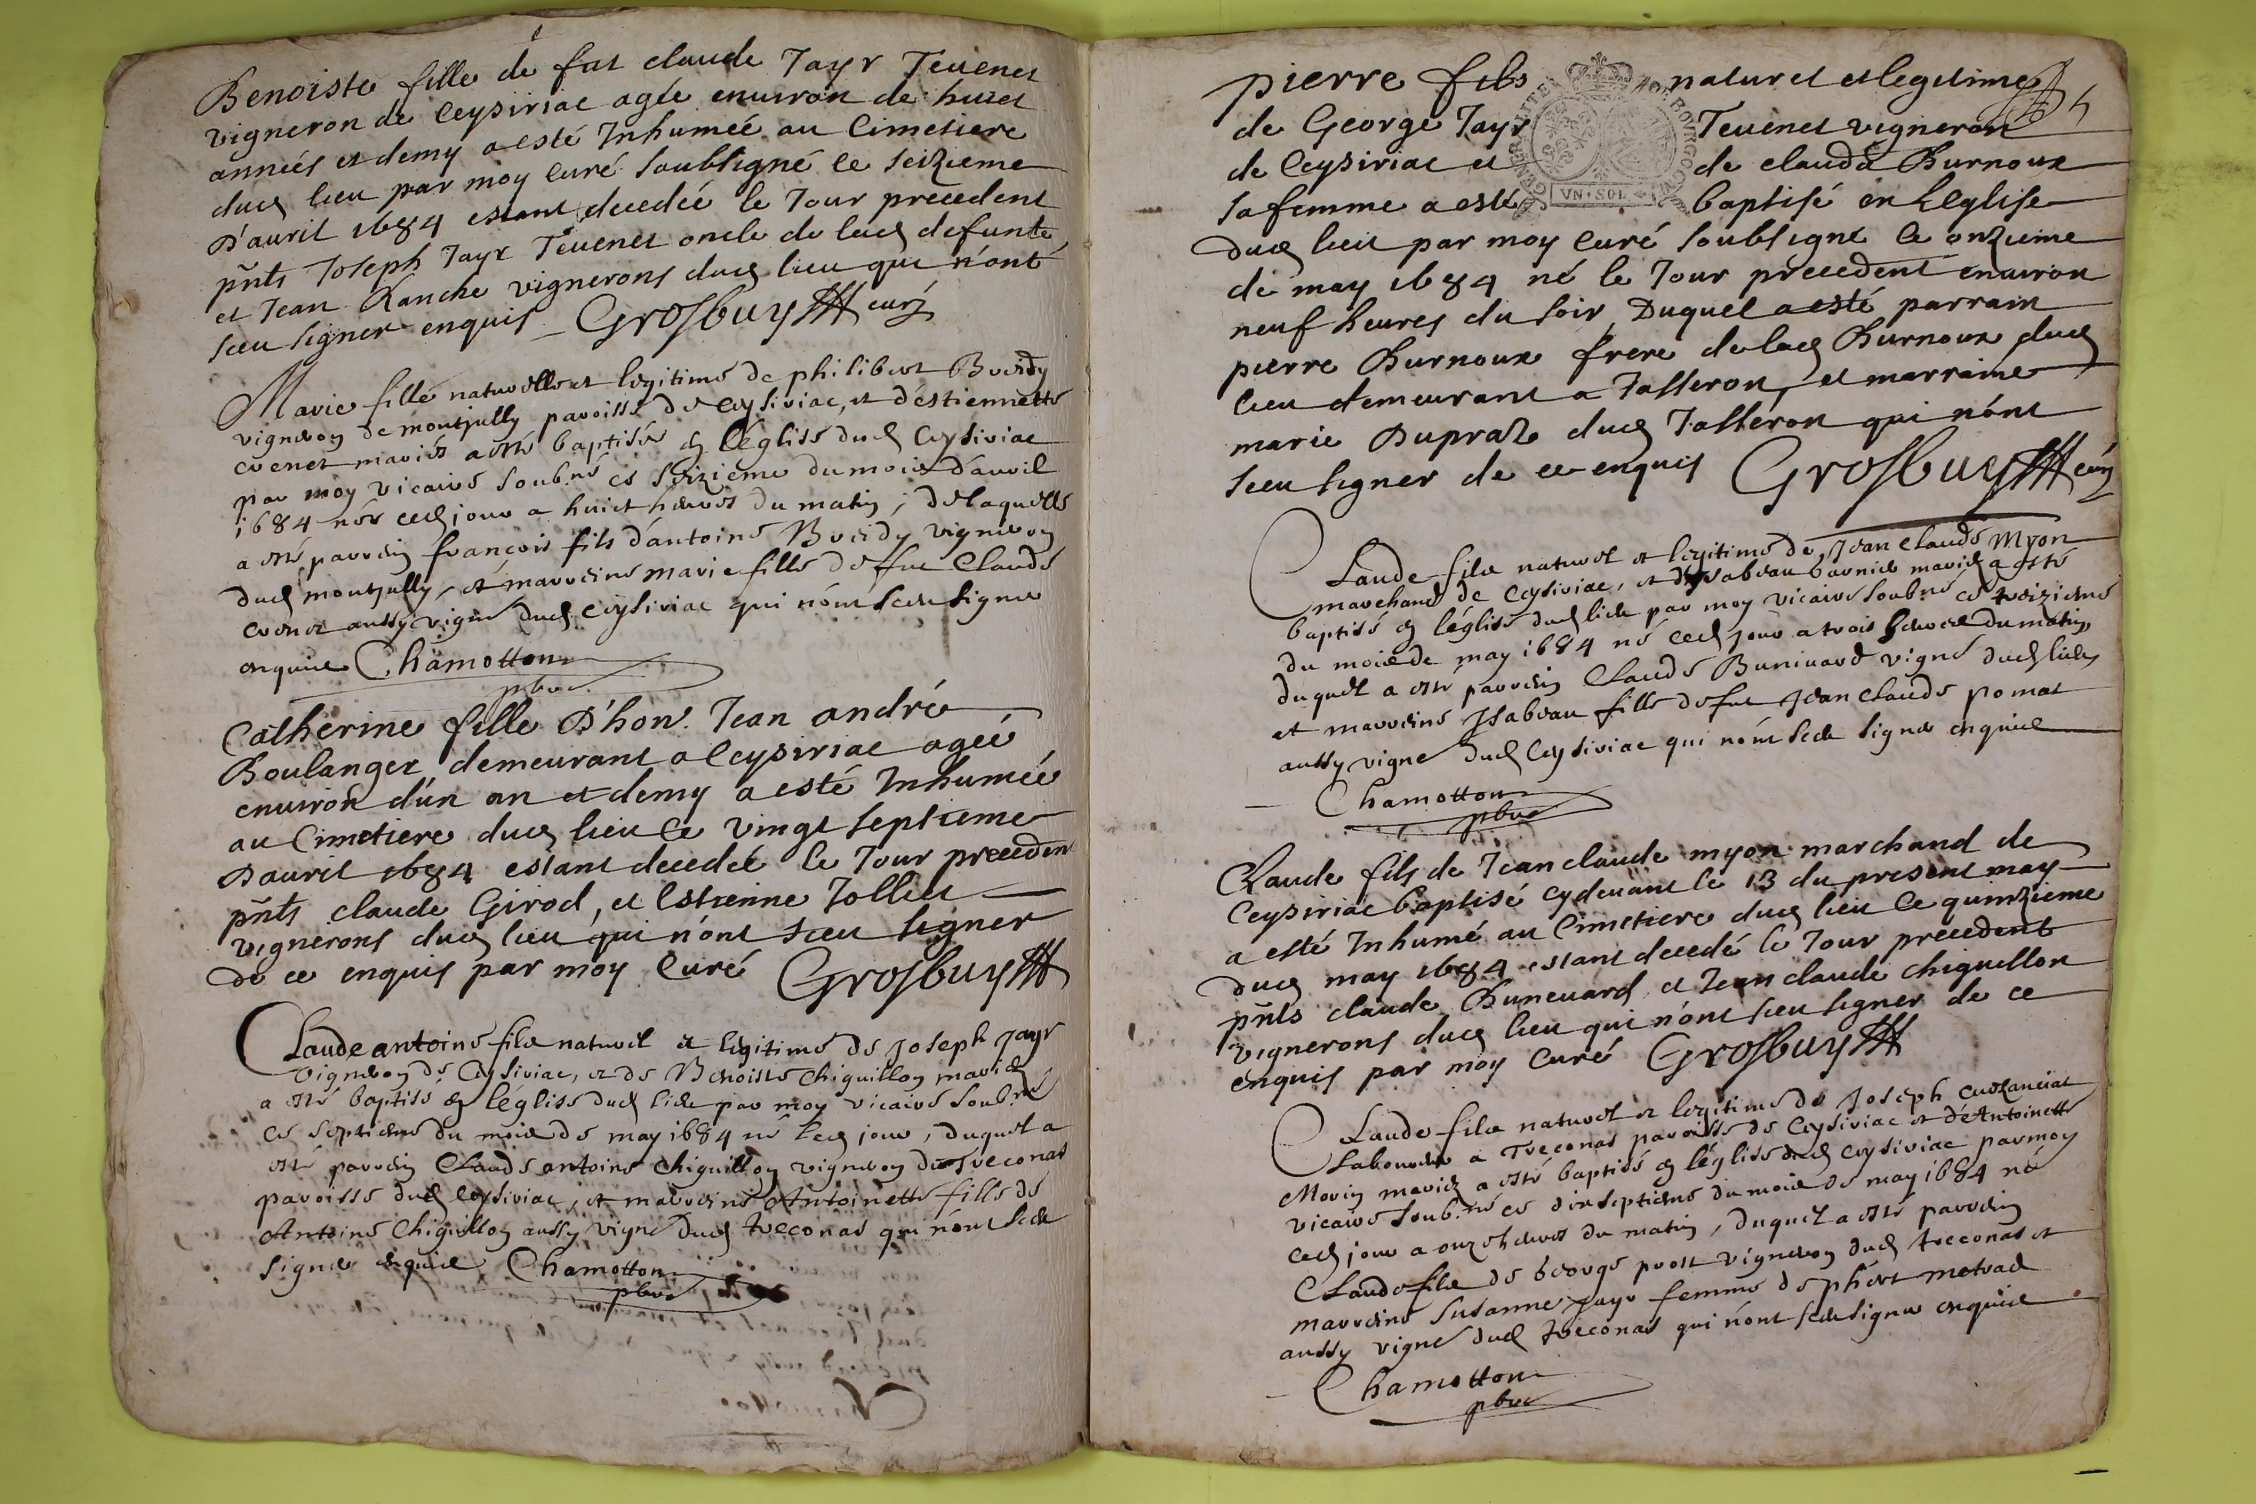 Benoiste fille de fut claude Jayr Teuenet
vigneron de Ceysiriac agée enuiron de huict
années et demy a esté Inhumeé au Cimetiere
dud lieu par moy curé soubsigné le seizieme
D'auril 1684 estant decedée le Jour precedent
pñts Joseph Jayr Teuenet oncle de lad defunte
et Jean vignerons dud lieu qui n'ont
sceu signer enquis Grosbuy curé
Marie fille naturelle et legitime de philibert Breidy
vigneron de montjully paroisse de Ceysiriac, et d'estiennette
euenet mariés a esté baptisée en l'église dud Ceysiriac
par moy vicaire soub.né ce seizieme du mois d'auril
1684 née ced jour a huict heures du matin, de laquelle
a esté parrein françois fils d'antoine Breidy vigneron
dud montjully, et marreine marie fille de fut Claude
euenet aussy vigne dud Ceysiriac qui n'ont sceu signer
enquis Chamotton
pbre
Catherine fille D'hon. Jean andré
Boulanger demeurant a Ceysiriac agée
enuiron d'un an et demy a esté Inhumée
au Cimetiere dud lieu le vingt septieme
D'auril 1684 estant decedée le Jour preceden
pñts claude Girod, et Estienne Jolliet
vignerons dud lieu qui n'ont sceu signer
de ce enquis par moy Curé Grosbuy
Claude antoine fils naturel et legitime de Joseph Jayr
vigneron de Ceysiriac, et de Benoiste Chiquillon mariés
a esté baptisé en l'église dud lieu par moy vicaire soub.né
ce septieme du mois de may 1684 né led jour, duquel a
esté parrein Claude antoine Chiquillon vigneron de Treconas
paroisse dud Ceysiriac, et marreine Antoinette fille de
Antoine Chiquillon aussy vigne dud treconas qui n'ont sceu
signer enquis Chamotton
pbre
pierre fils naturel et legitime
de George Jayr Teuenet vigneron
de Ceysiriac et de clauda Burnoux
sa femme a esté baptisé en L'eglise
dud lieu par moy curé soubsigné le onzieme
de may 1684 né le Jour precedent enuiron
neuf heures du soir, Duquel a esté parrain
pierre Burnoux frere de lad Burnoux dud
lieu demeurant a Jasseron, et marraine
marie Dupraz dud Jasseron qui n'ont
sceu signer de ce enquis Grosbuy curé
VN · SOL
Claude fils naturel et legitime de Jean Claude Myon
marchand de Ceysiriac, et d'ysabeau barnier mariés a esté
baptisé en l'église dud lieu par moy vicaire soub.né ce treizieme
du mois de may 1684 né ced jour a trois heures du matin,
duquel a esté parrein Claude Buniuard vigne dud lieu
et marreine Jsabeau fille de fut Jean Claude pomat
aussy vigne dud Ceysiriac qui n'ont sceu signer enquis
Chamotton
pbre
Claude fils de Jean claude myon marchand de
Ceysiriac baptisé cydeuant le 13 du present may
a esté Inhumé au Cimetiere dud lieu le quinzieme
dud may 1684 estant decedé le Jour precedent
pñts claude Buneuard, et Jean claude chiquillon
vignerons dud lieu qui n'ont sceu signer de ce
enquis par moy curé Grosbuy
Claude fils naturel et legitime de Joseph
Laboureur a Treconas paroisse de Ceysiriac et d'Antoinette
Morin mariés a esté baptisé en l'église dud Ceysiriac par moy
vicaire soub.né ce dixseptieme du mois de may 1684 né
ced jour a onze heures du matin, duquel a esté parrein
Claude fils de George prost vigneron dud treconas et
marreine Susanne Jayr femme de phert metrad
aussy vigne dud treconas qui n'ont sceu signer enquis
Chamotton
pbre